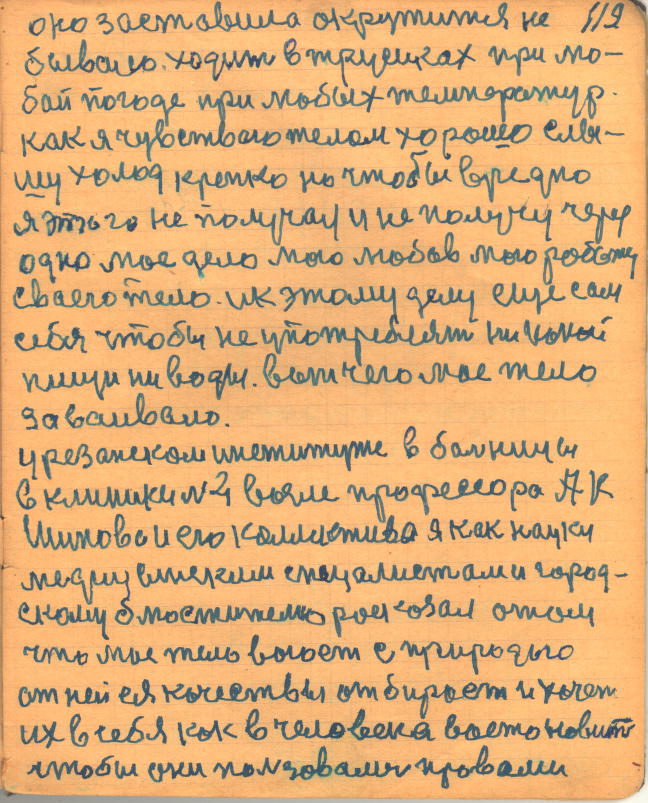 оно заставила окрутится не 119
бывало. ходит в трусиках при лю-
бай погоде при любых температур.
как я чувствваю телом хорошо слы-
шу холод крепко но чтобы вредно
я этого не получал и не получу через
одно мое дело мою любов мою работу
сваего тело. и к этому делу еще сам
себя чтобы не употреблят никакой
пищи ни воды. вот чего мое тело
заваивало.
у резанском институте в болницы
в клиники № 4 возле профессора А К
Шилова и его коллистива я как науки
медицинским спецалистам и город-
скому блюстителю росказал отом
что мое тело воюет с природыю
от ней ея качествы отбирает и хочет
их в себя как в человека востоновит
чтобы они ползовалис провами